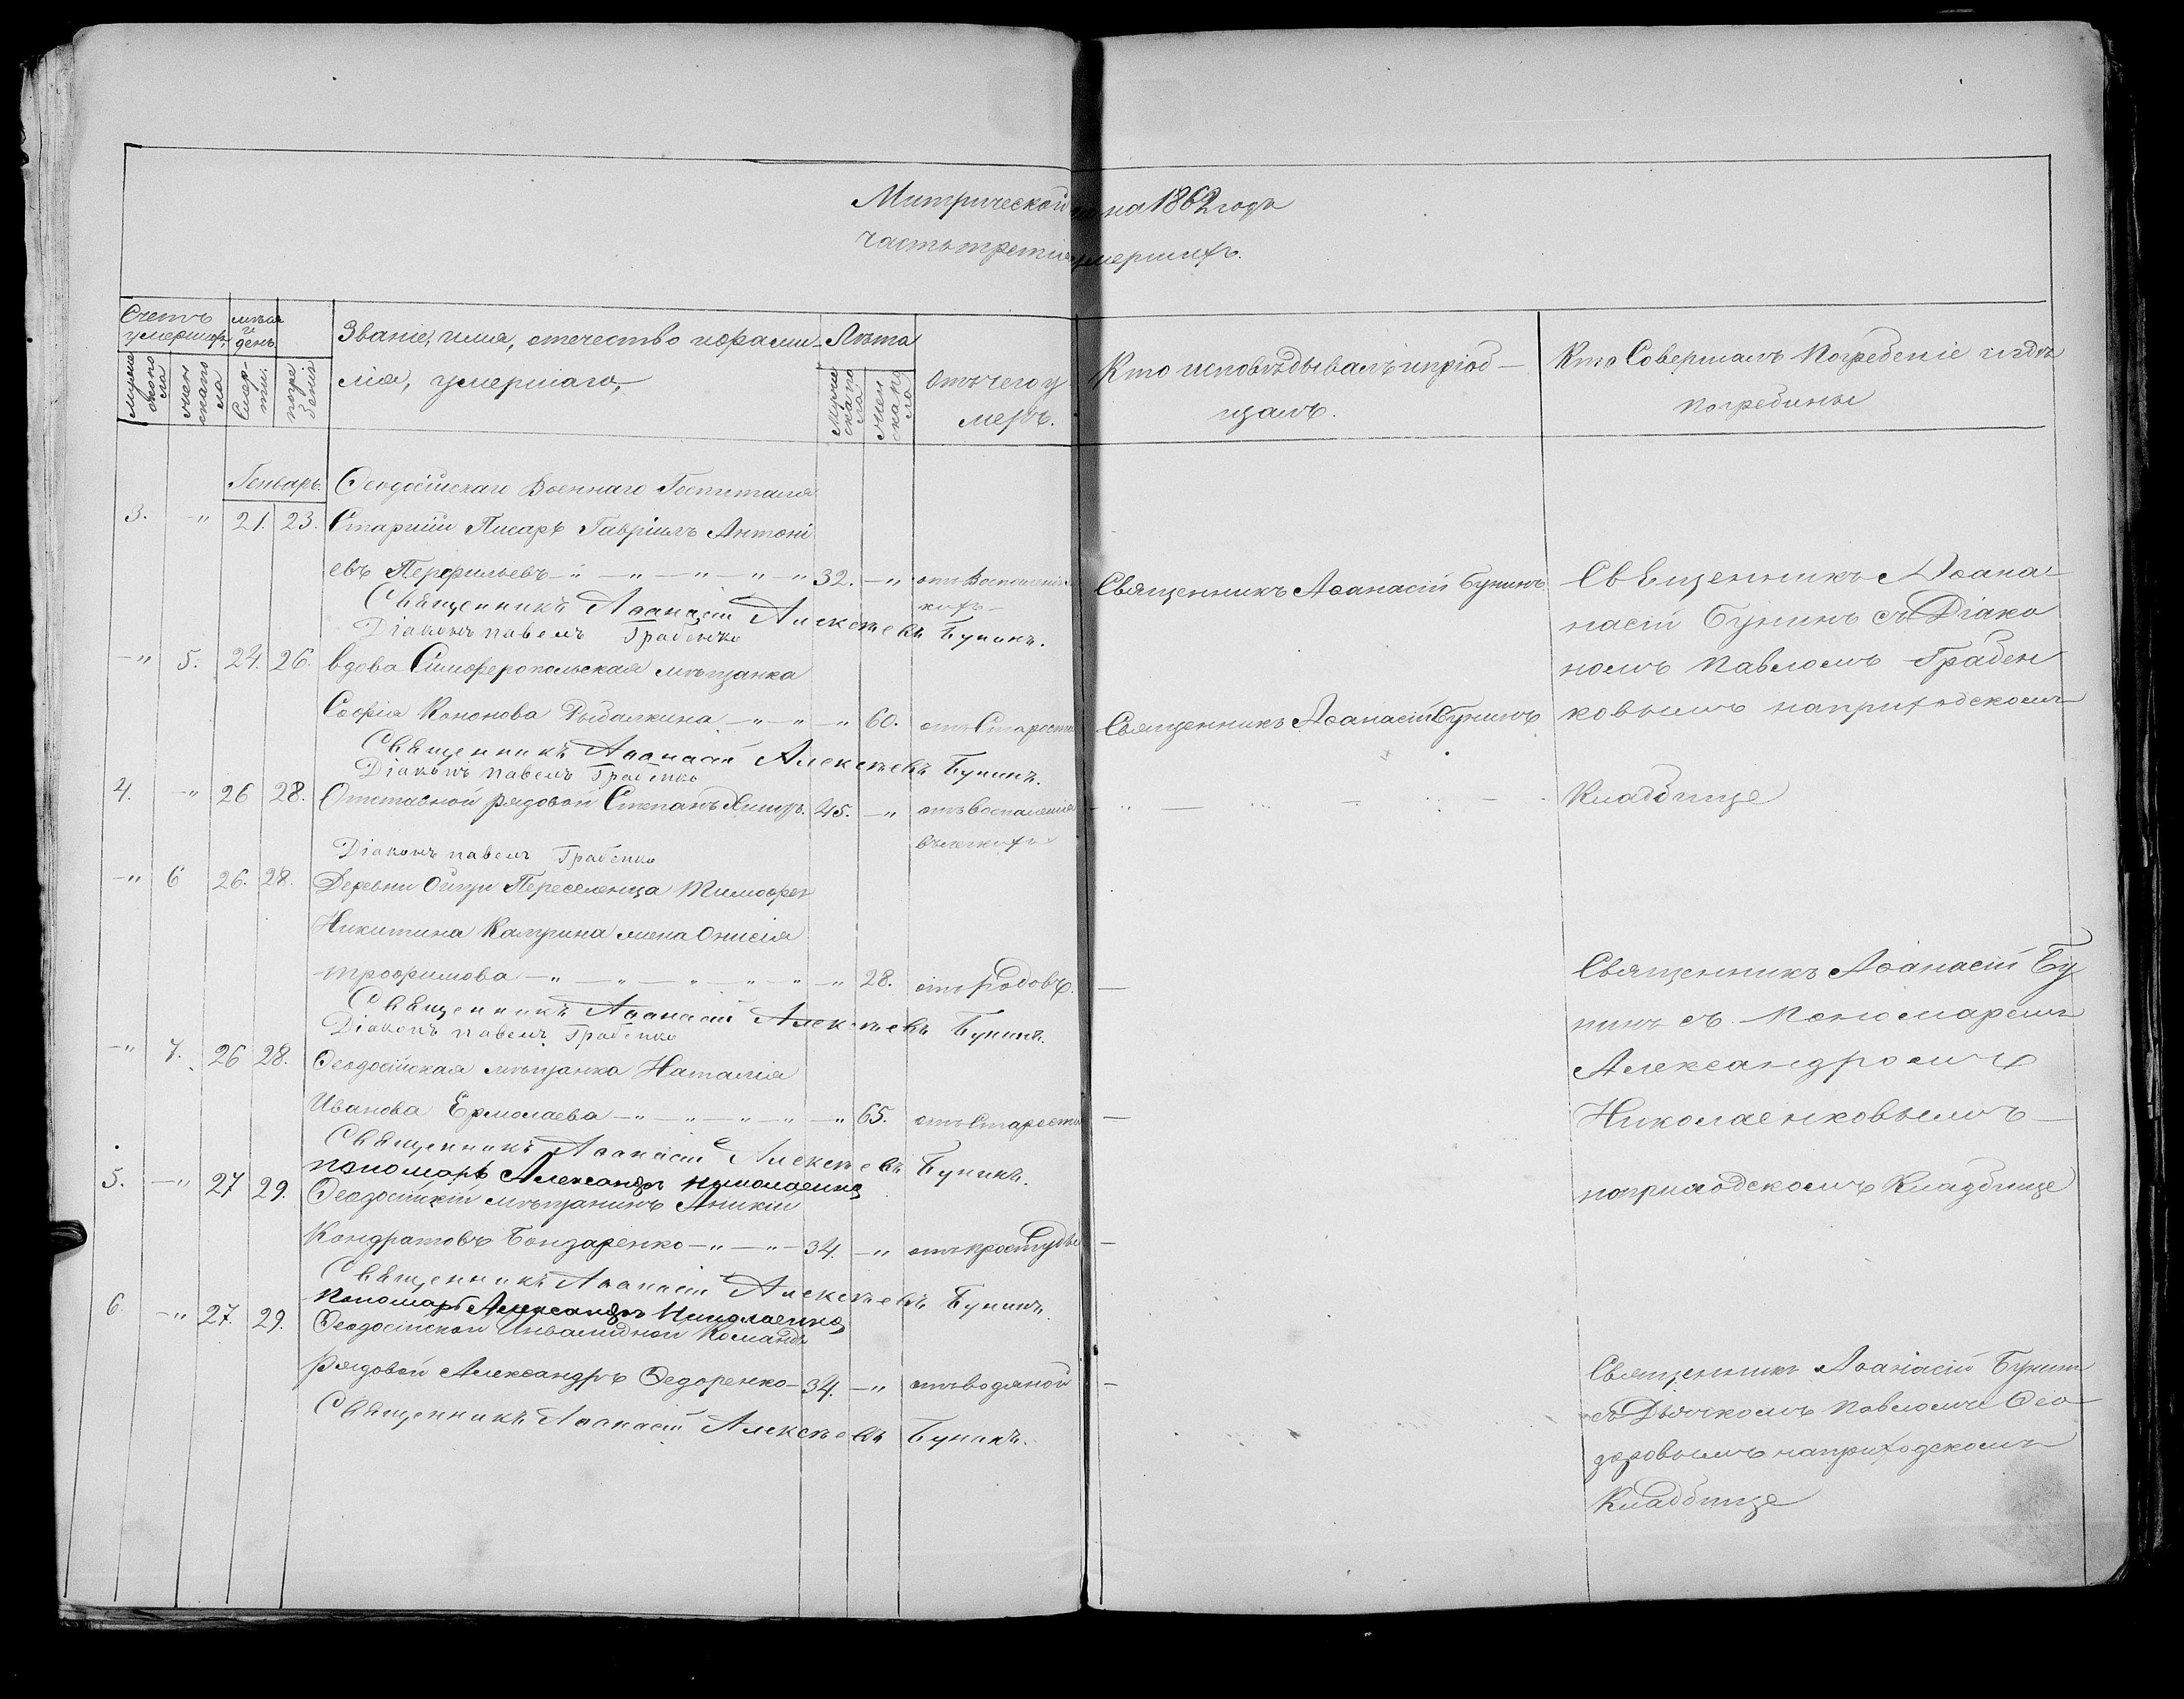 Митрической на 1862 годъ
часть третія умершихъ.
Счетъ умершихъ
мѣся и день
Званіе, имя, отчество и фами-
лія, умершаго,
Лѣта
отъ чего у
меръ.
Кто исповѣдывалъ и пріоб-
щалъ.
Кто Совершалъ Погребеніе и гдѣ
погребины
мужескаго пола
женскаго пола
Смер-ти.
погребенія
мужеска пола
женска пола
Генварь. Ѳеодосійскаго Военнаго Госпиталя
3. -" 21. 23. Старшій Писарь Гавріилъ Антоні
евъ Перфильевъ -"-"-"-" 32. -" отъ Воспаленія
Священникъ Аѳанасій Бунинъ.
Священникъ Аѳанасій Алексѣевъ Бунинъ.
Діаконъ павелъ Грабенко
-" 5. 24. 26. вдова Симферопольская мѣщанка
Софія Кононова Рыбалкина -"-"-" 60. отъ Старости
Священникъ Аѳанасій Бунинъ
Священникъ Аѳанасій Алексѣевъ Бунинъ.
Діаконъ павелъ Грабенко
Свѣщенникъ Аѳана-
насій Бунинъ съ Діако
номъ Павломъ Грабен
ковымъ наприходскомъ
Кладбище
4. -" 26 28. Отставной рядовой Степанъ 45. -" отъ Воспаленія
въ легкихъ
Діаконъ павелъ Грабенко
-" 6 26. 28. Деревни Переселенца Тимофея
Никитина жена Онисія
трофимова -"-"-"-"-" 28. отъ Родовъ. -
Священникъ Аѳанасій Алексѣевъ Бунинъ.
Діаконъ павелъ Грабенко
-" 7. 26 28. Ѳеодосійская мѣщанка Наталія
Иванова Ермолаева -"-"-"-" 65. отъ Старости -
Священникъ Аѳанасій Алексѣевъ Бунинъ.
пономарь Александръ Николаенко
Священникъ Аѳанасій Бу
нинъ съ Пономаремъ
Александромъ
Николаенковымъ -
наприходскомъ Кладбище
5. -" 27 29. Ѳеодосійскій мѣщанинъ Аникій
Кондратовъ Бондаренко -"-"- 34. -" отъ простуды -
Священникъ Аѳанасій Алексѣевъ Бунинъ
Пономарь Александръ Николаенко
6. -" 27. 29. Ѳеодосійской Инвалидной Команды
Рядовой Александръ Ѳедоренко - 34. -" отъ водяной -
Священникъ Аѳанасій Алексѣевъ Бунинъ.
Священникъ Аѳанасій Бунинъ
съ Дьячкомъ Павломъ Ѳео-
доровымъ наприходскомъ
Кладбище